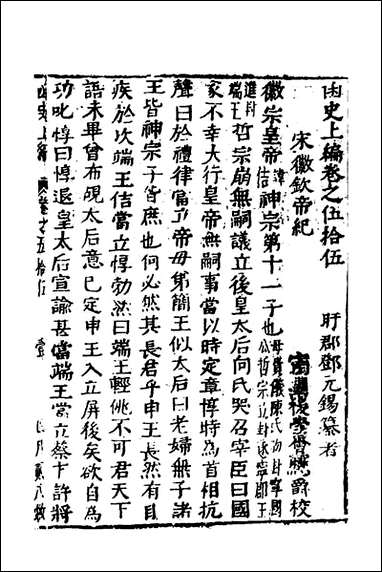 函史上編卷之伍拾伍
盱郡鄧元錫纂著
宋徽欽帝紀
校
徽宗皇帝諱佶神宗第十一子也母貴儀陳氏初封寧國公哲宗立封遂寧郡王
進封端王哲宗崩無嗣議立後皇太后向氏哭召宰臣曰國
家不幸大行皇帝無嗣事當以時定章惇時為首相抗
聲曰於禮律當立帝母弟簡王似太后曰老婦無子諸
王皆神宗子皆庶也何必然其長君乎申王長然有目
疾於次端王佶當立惇勃然曰端王輕佻不可君天下
語未畢曾布覘太后意已定申王入立屏後矣欲自為
功叱惇曰惇退皇太后宣諭甚當端王當立蔡卞許將
函史上編